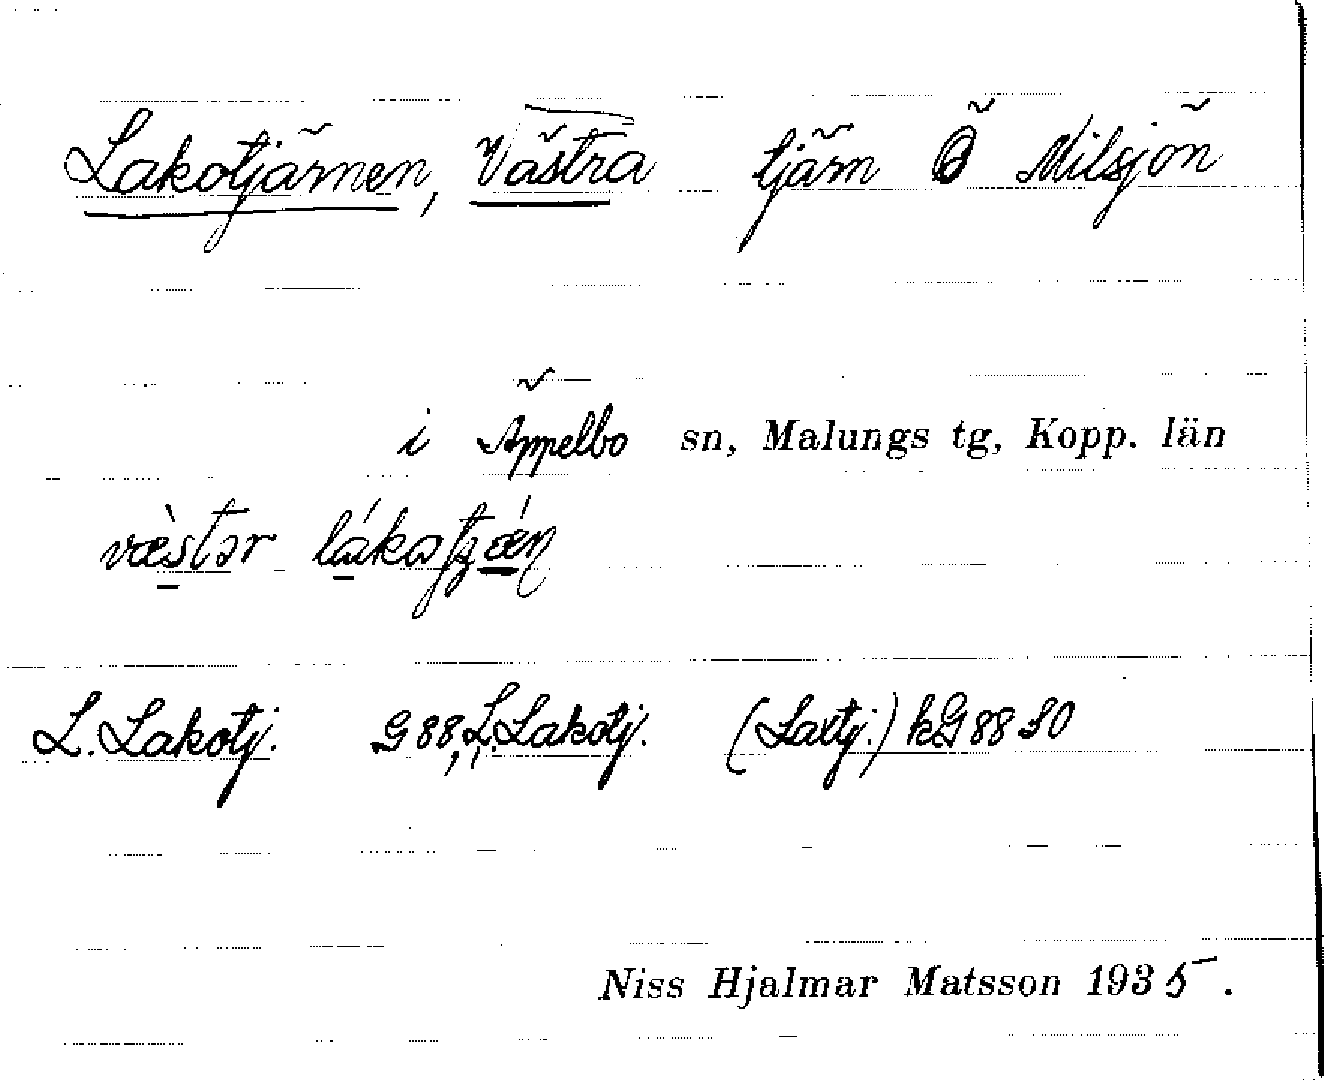 Lakotjärnen, Västra tjärn Ö Milsjön
i Äppelbo sn, Malungs tg, Kopp. län
væ̀stər
L. Lakotj. G 88, L. Lakotj. (Laxtj.) kG 88 SO
Niss Hjalmar Matsson 1935.